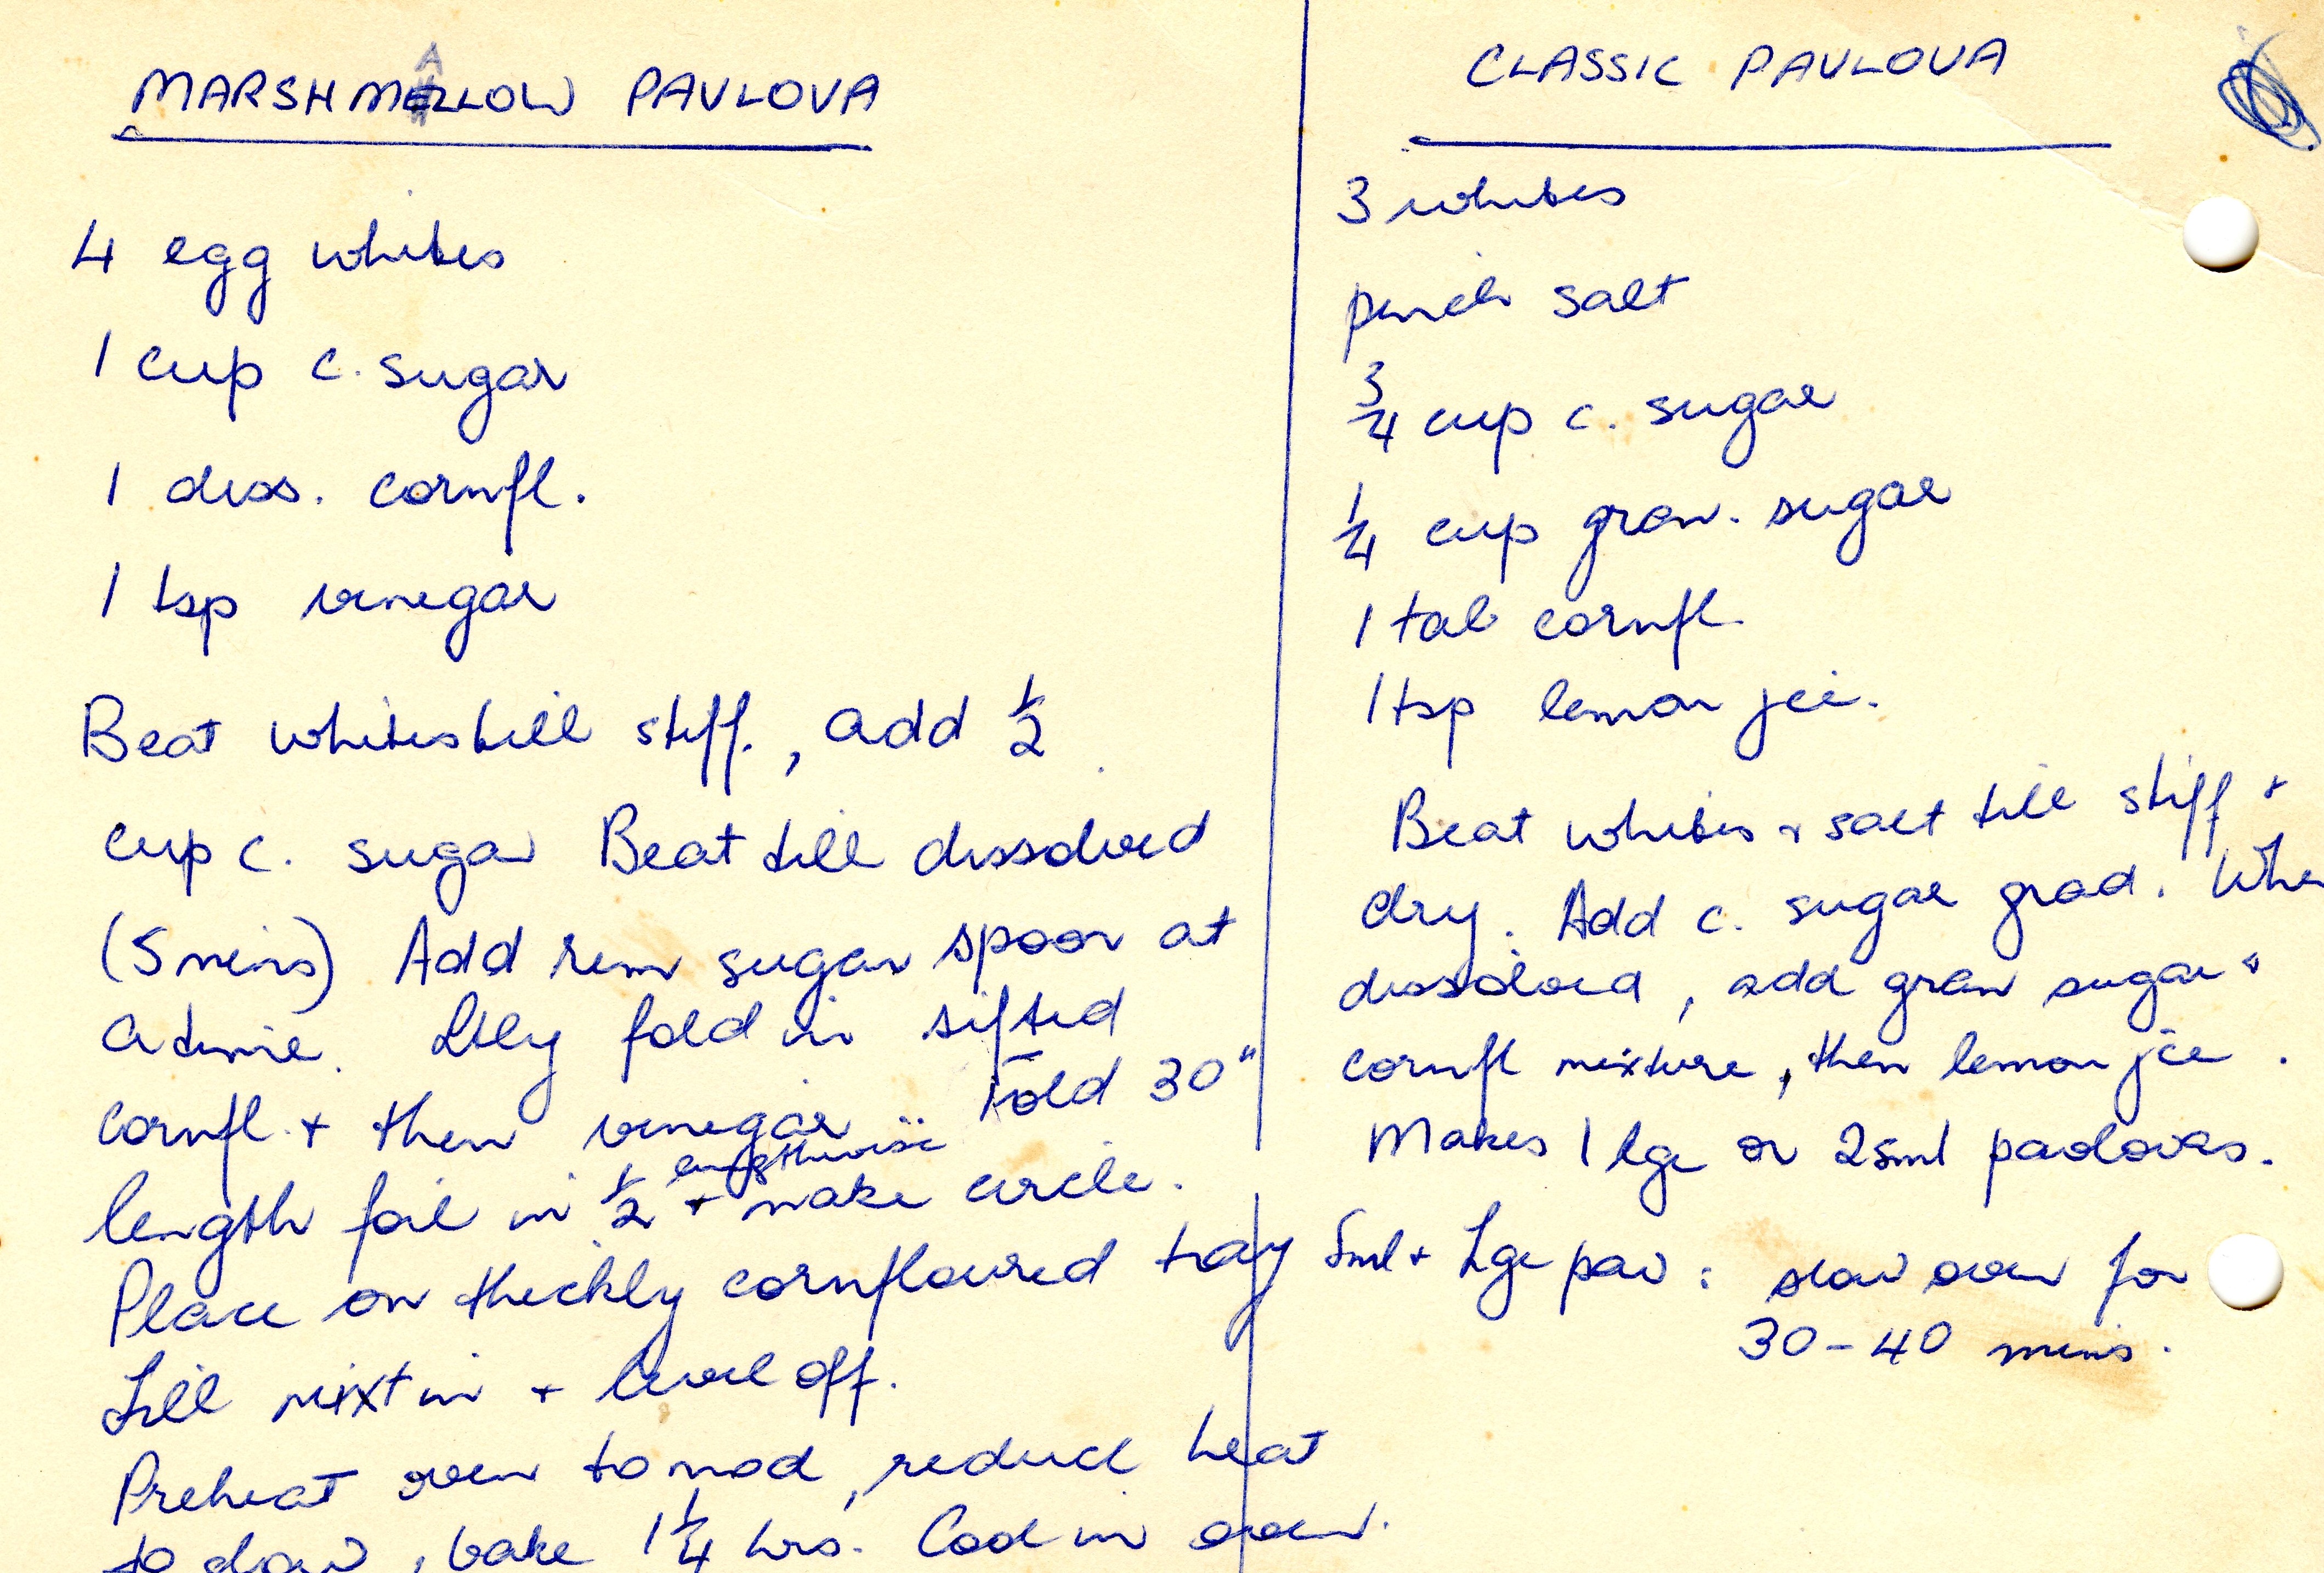 MARSHMALLOW PAVLOVA
4 egg whites
1 cup c. sugar
1 dess. cornfl.
1 tsp vinegar
Beat whites till stiff, add ½
cup c. sugar Beat till dissolved
(5 mins) Add rem sugar spoon at
a time. Ltly fold in sifted
cornfl. + then vinegar. Fold 30"
length foil in ½ lengthwise + make circle.
Place on thickly cornfloured tray
Fill mixt in + level off.
Preheat oven to mod, reduce heat
to slow, bake 1¼ hrs. Cool in oven.
CLASSIC PAVLOVA
3 whites
pinch salt
¾ cup c. sugar
¼ cup gran. sugar
1 tab cornfl.
1 tsp lemon jce.
Beat whites + salt till stiff +
dry. Add c. sugar grad. Whe
dissolved, add gran sugar +
cornfl mixture, then lemon jce.
Makes 1 lge or 2 sml pavlovas.
Sml + Lge pav: slow oven for
30-40 mins.